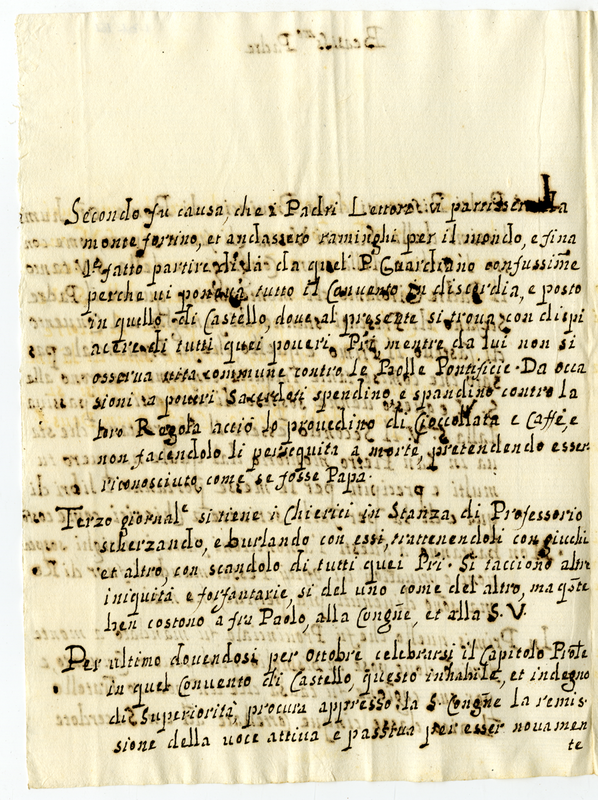 Secondo fu causa, che i Padri Lettori vi partissero da
monte fortino, et andassero raminghi per il mondo, e fina
fatto partire di là da quel P. Guardiano confussime
perche vi poneva tutto il Convento in discordia, e posto
in quello di Castello, dove al presente si trova con dispi
acere di tutti quei poveri Pri, mentre da lui non si
osserva vita commune contro le Bolle Pontificie. Da occa
sioni a poveri Sacerdoti spendino, e spandino contro la
loro Regola acciò lo provedino di Cioccollata e Caffè, e
non facendolo li perseguita a morte, pretendendo esser
riconosciuto come se fosse Papa.
Terzo giornal.e si tiene i Chierici in Stanza, di Professorio
scherzando, e burlando con essi, trattenendoli con giuchi
et altro, con scandolo di tutti quei Pri. Si tacciono altre
iniquità e forfantarie, si del uno come del altro, ma qste
ben costono a fra Paolo, alla Congne, et alla S. V.
Per ultimo dovendosi per ottobre celebrarsi il Capitolo Prole
in quel Convento di Castello, questo inhabile, et indegno
di Superiorità, procura appresso la S. Congne la remis
sione della voce attiva e passiva per esser novamen
te